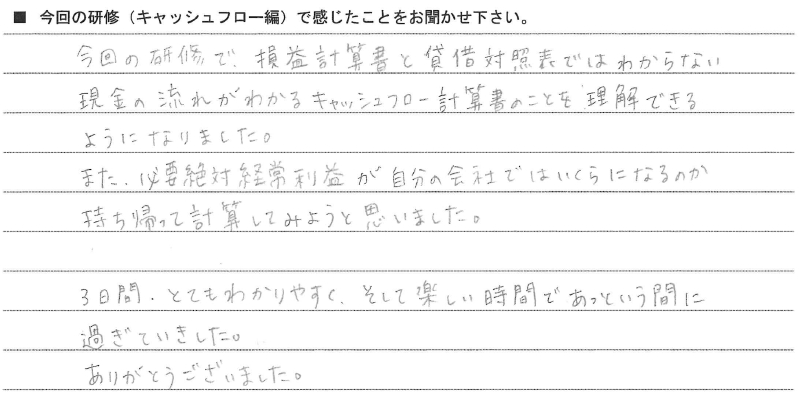 ■ 今回の研修（キャッシュフロー編）で感じたことをお聞かせ下さい。
今回の研修で、損益計算書と貸借対照表ではわからない
現金の流れがわかるキャッシュフロー計算書のことを理解できる
ようになりました。
また、必要絶対経常利益が自分の会社ではいくらになるのか
持ち帰って計算してみようと思いました。
3日間、とてもわかりやすく、そして楽しい時間であっという間に
過ぎていきました。
ありがとうございました。